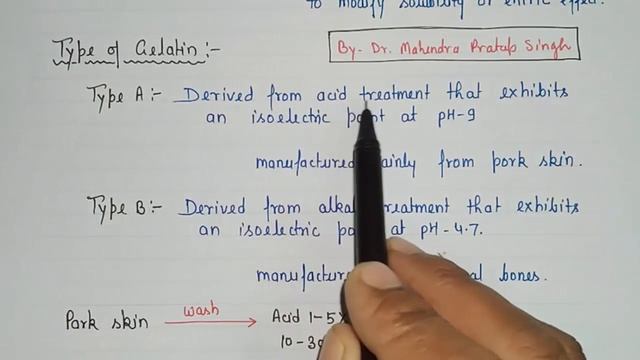 to modify solubility or enteric effect.
Type of Gelatin :-
By- Dr. Mahendra Pratap Singh
Type A :- Derived from acid treatment that exhibits
an isoelectric point at pH-9
manufactured mainly from pork skin.
Type B :- Derived from alkali treatment that exhibits
an isoelectric point at pH-4.7.
manufactured bones.
Pork skin wash Acid 1-5%